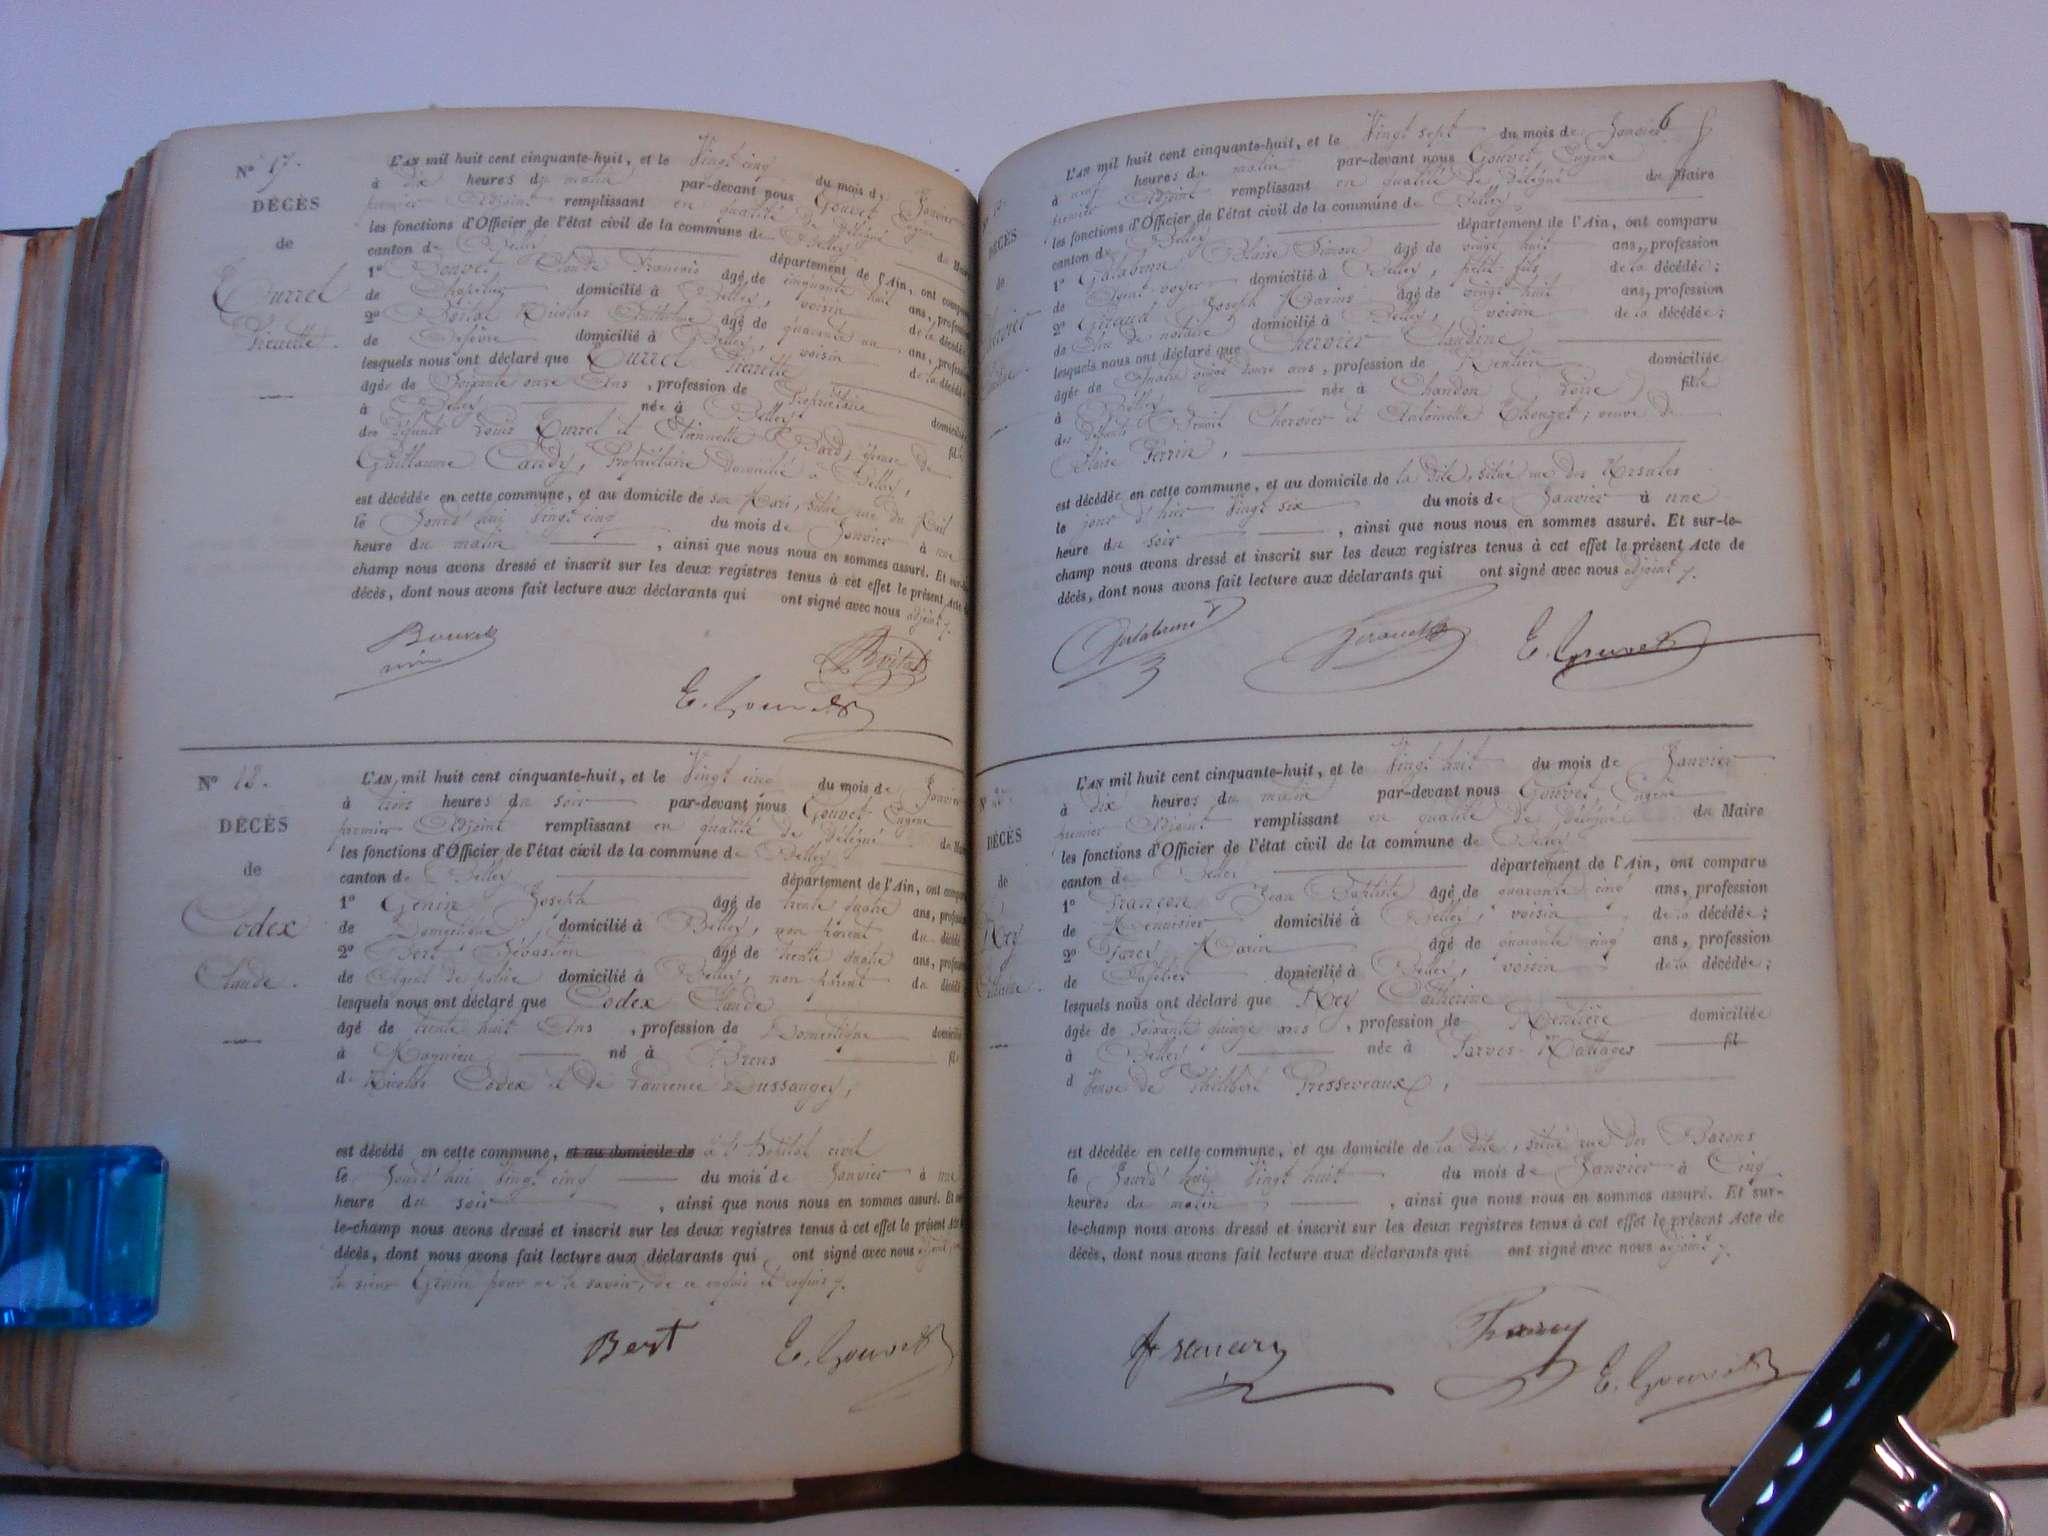 Nº 17.
DÉCÈS
de
Curret
Pierrette.
L'AN mil huit cent cinquante-huit, et le Vingt cinq du mois de Janvier
à dix heures du matin par-devant nous Gouvet Eugène
premier Adjoint remplissant en qualité de Délégué du Maire
les fonctions d'Officier de l'état civil de la commune de Belley
canton de Belley département de l'Ain, ont comparu
1º Bouvet Claude François âgé de cinquante huit ans, profession
de Chapelier domicilié à Belley, voisin de la décédée
2º Nicolas Anthelme âgé de quarante un ans, profession
de domicilié à Belley, voisin de la décédée
lesquels nous ont déclaré que Curret Pierrette
âgée de Soixante onze Ans, profession de Propriétaire domiciliée
à Belley née à Belley fille
des défunts Louis Curret et Etiennette épouse de
Guillaume Candy, Propriétaire domicilié à Belley,
est décédée en cette commune, et au domicile de son Mari, situé rue du Mail
le Jourd'hui Vingt cinq du mois de Janvier à une
heure du matin, ainsi que nous nous en sommes assuré. Et sur-le-
champ nous avons dressé et inscrit sur les deux registres tenus à cet effet le présent Acte de
décès, dont nous avons fait lecture aux déclarants qui ont signé avec nous adjoint
E. Gouvet
Nº 18.
DÉCÈS
de
Codex
Claude.
L'AN mil huit cent cinquante-huit, et le Vingt cinq du mois de Janvier
à trois heures du soir par-devant nous Gouvet Eugène
premier Adjoint remplissant en qualité de Délégué du Maire
les fonctions d'Officier de l'état civil de la commune de Belley
canton de Belley département de l'Ain, ont comparu
1º Genin Joseph âgé de trente quatre ans, profession
de Domestique, domicilié à Belley, non parent du décédé
2º Bert Sébastien âgé de trente quatre ans, profession
de Agent de police domicilié à Belley, non parent du décédé
lesquels nous ont déclaré que Codex Claude
âgé de trente huit Ans, profession de Domestique domicilié
à Magnieu né à Brens fils
de Nicolas Codex et de Laurence Dussauge,
est décédé en cette commune, et au domicile de à l'Hôpital civil
le Jourd'hui Vingt cinq du mois de Janvier à une
heure du soir, ainsi que nous nous en sommes assuré. Et sur-
le-champ nous avons dressé et inscrit sur les deux registres tenus à cet effet le présent Acte de
décès, dont nous avons fait lecture aux déclarants qui ont signé avec nous adjoint
le sieur Genin pour ne le savoir, de ce enquis et requis
Bert E. Gouvet
6
DÉCÈS
de
L'AN mil huit cent cinquante-huit, et le Vingt sept du mois de Janvier
à neuf heures du matin par-devant nous Gouvet, Eugène
premier Adjoint remplissant en qualité de Délégué du Maire
les fonctions d'Officier de l'état civil de la commune de Belley
canton de Belley département de l'Ain, ont comparu
1º Blaise Simon âgé de vingt huit ans, profession
de Agent voyer domicilié à Belley, petit fils de la décédée;
2º Giraud Joseph Marius âgé de vingt huit ans, profession
de Clerc de notaire domicilié à Belley, voisin de la décédée;
lesquels nous ont déclaré que Chervier Claudine
âgée de Quatre vingt douze ans, profession de Rentière domiciliée
à Belley née à Chandon (Loire) fille
des défunts Benoit Chervier et Antoinette; veuve de
Blaise Perrin,
est décédée en cette commune, et au domicile de la dite, situé rue des Ursules
le jour d'hier Vingt six du mois de Janvier à une
heure du soir, ainsi que nous nous en sommes assuré. Et sur-le-
champ nous avons dressé et inscrit sur les deux registres tenus à cet effet le présent Acte de
décès, dont nous avons fait lecture aux déclarants qui ont signé avec nous adjoint
E. Gouvet
DÉCÈS
de
Rey
L'AN mil huit cent cinquante-huit, et le Vingt huit du mois de Janvier
à dix heures du matin par-devant nous Gouvet Eugène
premier Adjoint remplissant en qualité de Délégué du Maire
les fonctions d'Officier de l'état civil de la commune de Belley
canton de Belley département de l'Ain, ont comparu
1º Françon Jean Baptiste âgé de quarante cinq ans, profession
de Menuisier domicilié à Belley, voisin de la décédée;
2º Marin âgé de quarante cinq ans, profession
de domicilié à Belley, voisin de la décédée;
lesquels nous ont déclaré que Rey Catherine
âgée de Soixante quinze ans, profession de Rentière domiciliée
à Belley née à Parves-Nattages fil
d Veuve de Philibert Presseveaux,
est décédée en cette commune, et au domicile de la dite, situé rue des Barons
le Jourd'hui Vingt huit du mois de Janvier à Cinq
heures du matin, ainsi que nous nous en sommes assuré. Et sur-
le-champ nous avons dressé et inscrit sur les deux registres tenus à cet effet le présent Acte de
décès, dont nous avons fait lecture aux déclarants qui ont signé avec nous adjoint
E. Gouvet